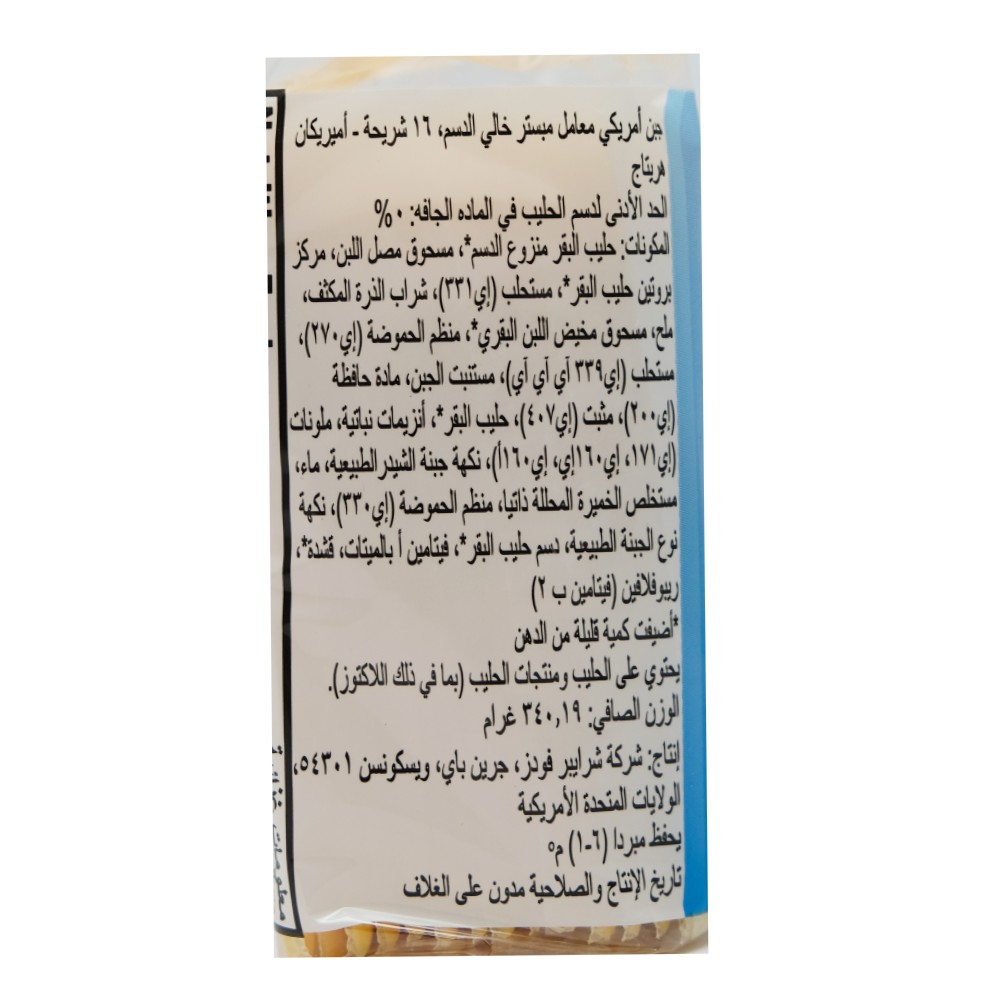 جبن أمريكي معامل مبستر خالي الدسم، ١٦ شريحة - أميريكان
هريتاج
الحد الأدنى لدسم الحليب في الماده الجافه: ٠%
المكونات: حليب البقر منزوع الدسم*، مسحوق مصل اللبن، مركز
بروتين حليب البقر*، مستحلب (إي٣٣١)، شراب الذرة المكثف،
ملح، مسحوق مخيض اللبن البقري*، منظم الحموضة (إي٢٧٠)،
مستحلب (إي٣٣٩ آي آي آي)، مستنبت الجبن، مادة حافظة
(إي٢٠٠)، مثبت (إي٤٠٧)، حليب البقر*، أنزيمات نباتية، ملونات
(إي١٧١، إي١٦٠إي، إي١٦٠أ)، نكهة جبنة الشيدر الطبيعية، ماء،
مستخلص الخميرة المحللة ذاتيا، منظم الحموضة (إي٣٣٠)، نكهة
نوع الجبنة الطبيعية، دسم حليب البقر*، فيتامين أ بالميتات، قشدة*،
ريبوفلافين (فيتامين ب ٢)
*أضيفت كمية قليلة من الدهن
يحتوي على الحليب ومنتجات الحليب (بما في ذلك اللاكتوز).
الوزن الصافي: ٣٤٠,١٩ غرام
إنتاج: شركة شرايبر فودز، جرين باي، ويسكونسن ٥٤٣٠١،
الولايات المتحدة الأمريكية
يحفظ مبردا (٦-١) م°
تاريخ الإنتاج والصلاحية مدون على الغلاف
معلومات